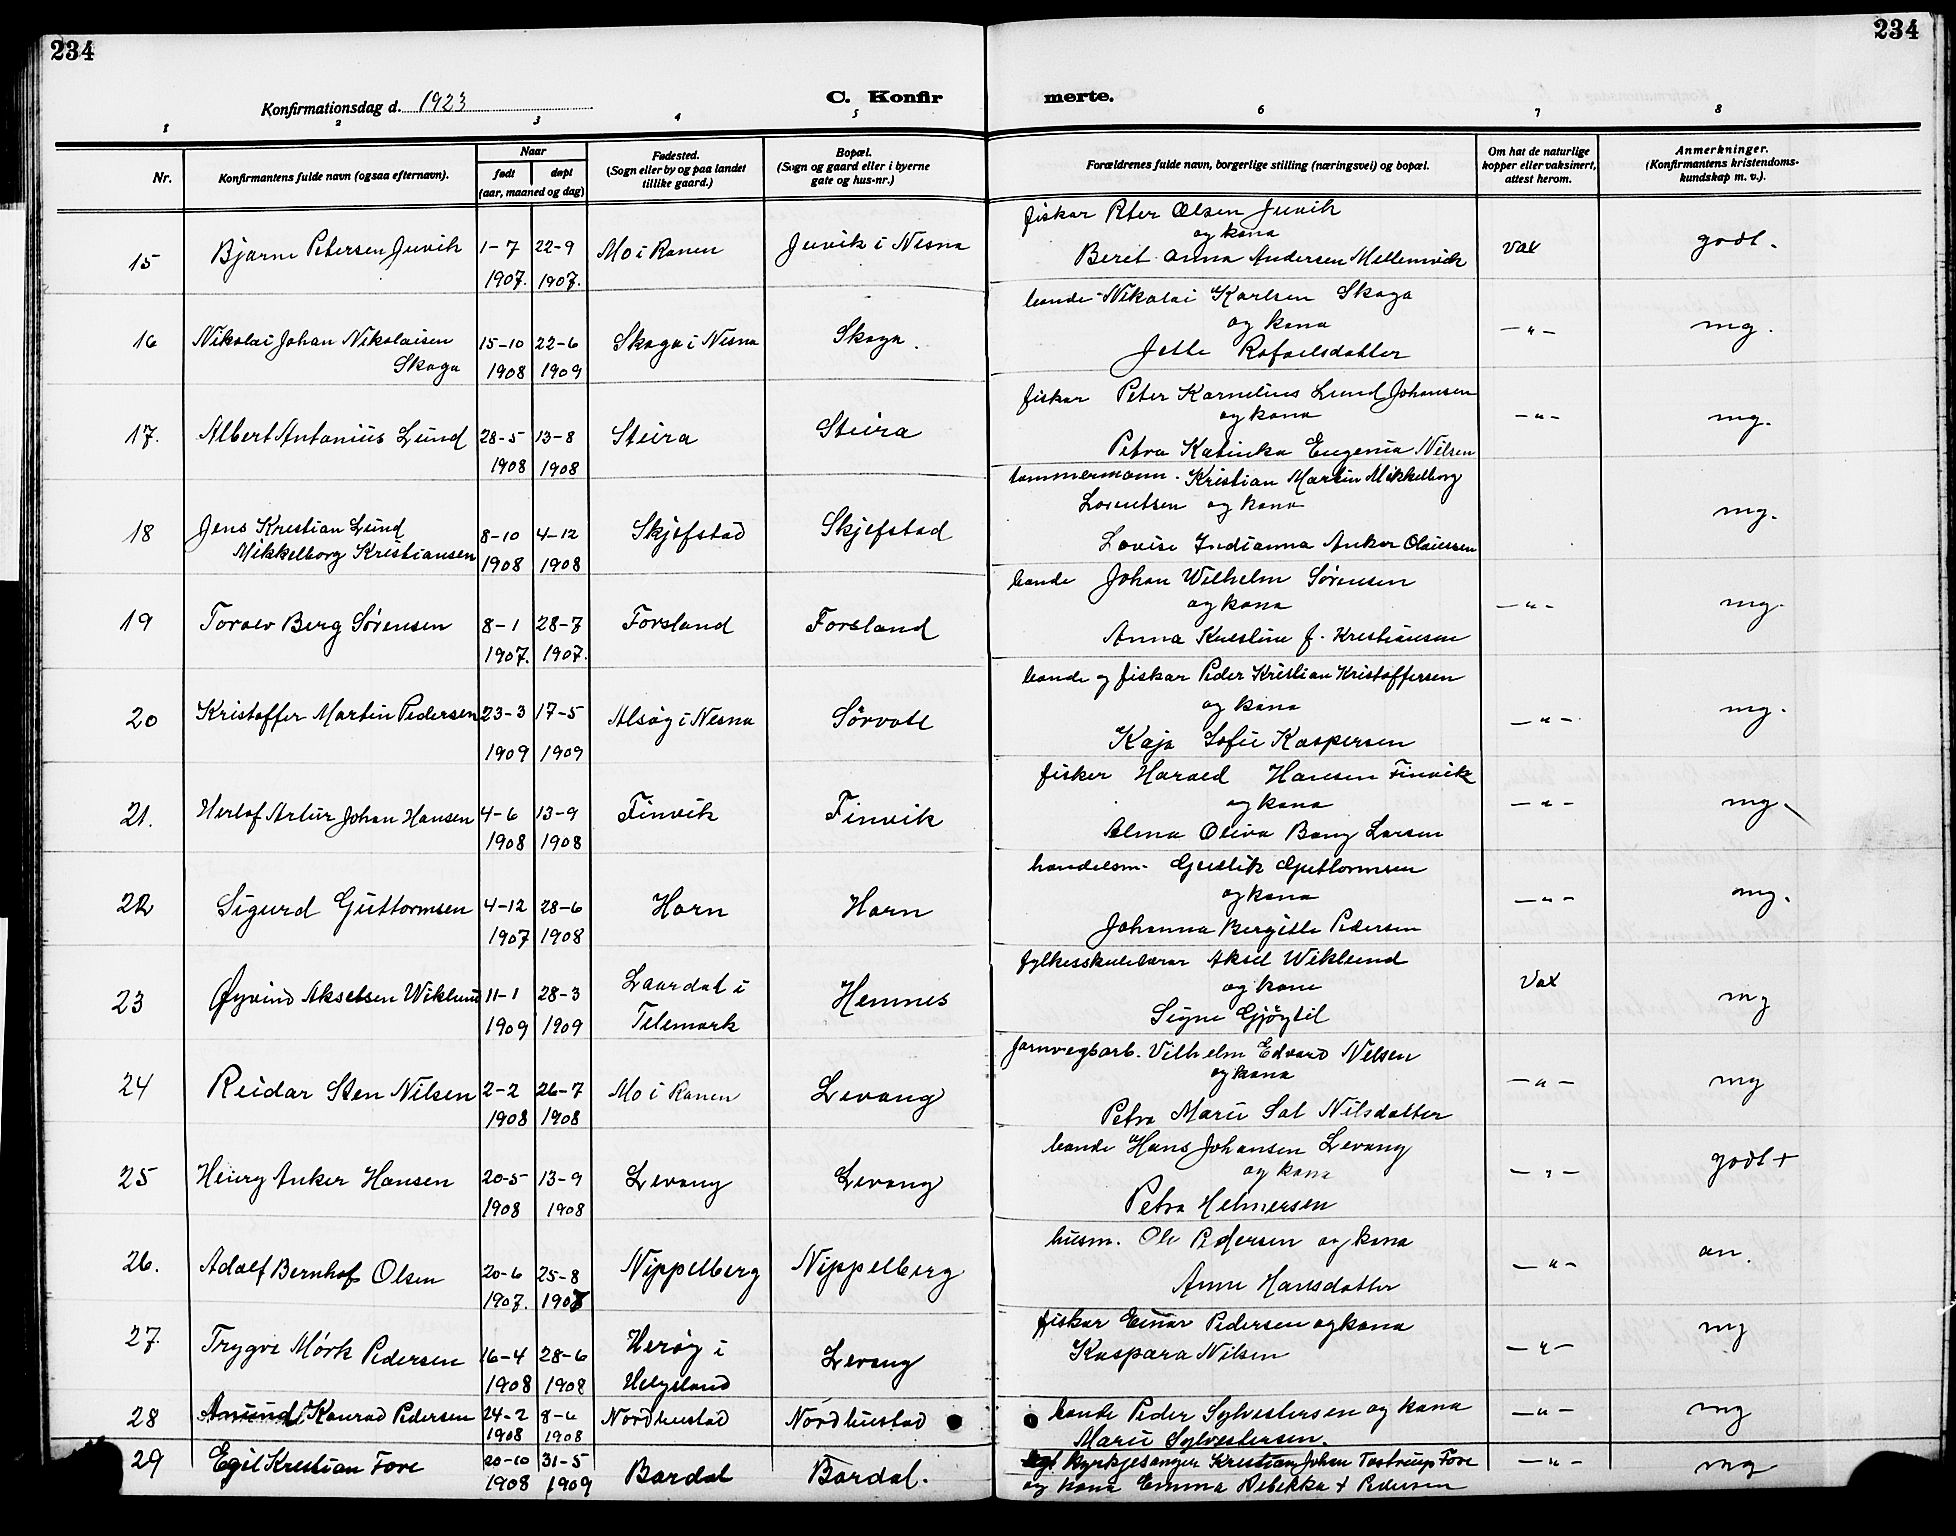 234
234
Konfirmationsdag d. 1923
C. Konfir
merte.
1 2 3 4 5 6 7 8
Nr.
Konfirmantens fulde navn (ogsaa efternavn).
Naar
født
døpt
(aar, maaned og dag)
Fødested.
(Sogn eller by og paa landet
tillike gaard.)
Bopæl.
(Sogn og gaard eller i byerne
gate og hus-nr.)
Forældrenes fulde navn, borgerlige stilling (næringsvei) og bopæl.
Om hat de naturlige
kopper eller vaksinert,
attest herom.
Anmerkninger.
(Konfirmantens kristendoms-
kundskap m. v.).
fiskar Peter Olsen Juvik
og kona
15 Bjarne Petersen Juvik 1-7 22-9 Mo i Ranen Juvik i Nesna Beret Anna Andersen Mellemvik Vax godt.
1907. 1907.
bonde Nikolai Karlsen Skaga
og kona
16 Nikolai Johan Nikolaisen 15-10 22-6 Skaga i Nesna Skaga. -"- mg.
Skaga 1908 1909 Jette Rafaelsdatter
fiskar Peter Kornelius Lund Johansen
og kona -"- mg.
17. Albert Antonius Lund 28-5 13-8 Steira Steira
1908 1908 Petra Katinka Eugenia Nilsen
tømmermann. Kristian Martin Mikkelborg
Lorentsen og kona
18 Jens Kristian Lund 8-10 4-12 Skjefstad Skjefstad mg.
Mikkelborg Kristiansen 1908 1908 Lovise Indianna Anker Olaisen
bonde Johan Wilhelm Sørensen
og kona
19 Toralv Berg Sørensen 8-1 28-7 Forsland Forsland -"- mg.
1907. 1907. Anna Kristine f. Kristiansen
bonde og fiskar Peder Kristian Kristoffersen
og kona
20 Kristoffer Martin Pedersen 23-3 17-5 Alsøy i Nesna Sørvole -"- mg.
1909 1909 Kaja Sofie Kaspersen
fisker Harald Hansen Finvik
og kona
21. Herlof Artur Johan Hansen 4-6 13-9 Finvik Finvik -"- mg.
1908 1908 Alma Oliva Bang Larsen
handelsm. Gjertik Guttormsen
og kona
22 Sigurd Guttormsen 4-12 28-6 Horn Horn -"- mg.
1907 1908 Johanna Bergitte Pedersen
fylkesskulelærar Aksel Wiklund
og kona
23 Øyvind Akselsen Wiklund 11-1 28-3 Laardal i Hemnes Vax mg
1909 1909 Telemark Signe Gjøytil
jarnvegsarb. Vilhelm Edvard Nilsen
og kona
24 Reidar Sten Nilsen 2-2 26-7 Mo i Ranen Levang -"- mg
1908 1908 Petra Marie Sal Nilsdatter
bonde Hans Johansen Levang
og kona
25 Henry Anker Hansen 20-5 13-9 Levang Levang -"- godt +
1908 1908 Petra Helmersen
husm. Ole Pedersen og kona
26. Adolf Bernhof Olsen 20-6 25-8 Nippelberg Nippelberg -"- an.
1907. 1907 Anne Hansdatter
fiskar Einar Pedersen og kona
27. Trygve Mörk Pedersen 16-4 28-6 Herøy i Levang Kaspara Nilsen -"- mg
1908 1908 Helgeland
28 Amund Konrad Pedersen 24-2 8-6 Nordhustad Nordhustad bonde Peder Sylvestersen og kona -"- mg
1908 1908 Marie Sylvestersen.
29 Egil Kristian Fore 20-10 31-5 Bardal Bardal. kyrkjesanger Kristian Johan Tostrup Fore -"- mg
1908 1909 og kona Emma Rebekka f Pedersen